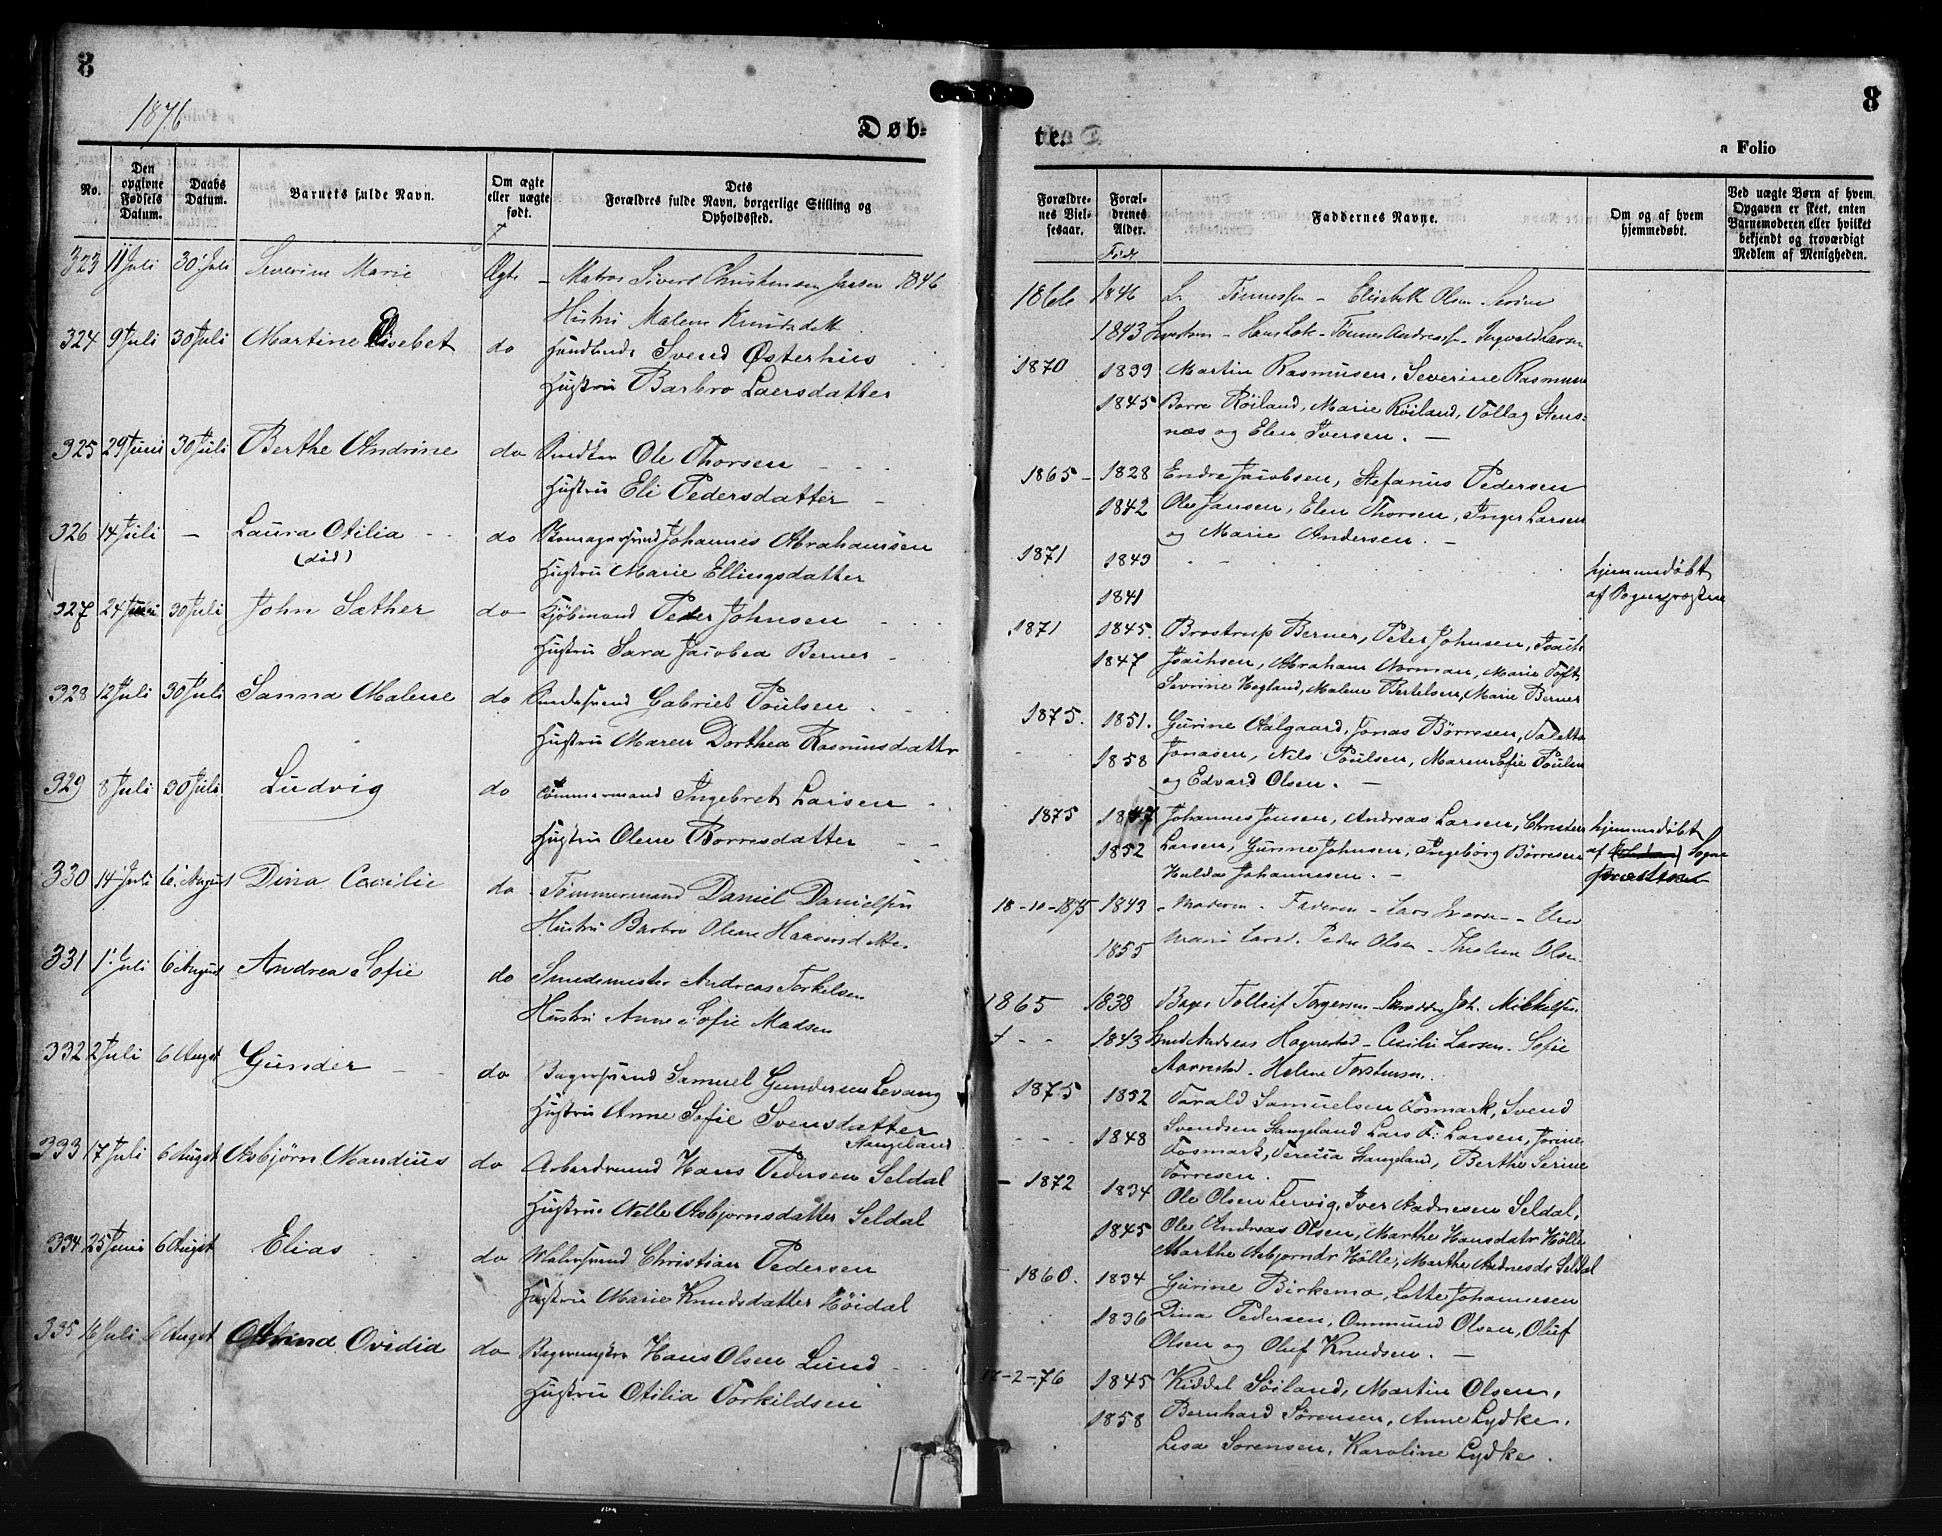 8
8
1876
Døb-
te.
a Folio
No.
Den opgivne Fødsels Datum.
Daabs Datum.
Barnets fulde Navn.
Om ægte eller uægte født.
Dets Forældres fulde Navn, borgerlige Stilling og Opholdssted.
Forældrenes Vielsesaar.
Forældrenes Alder.
Født
Faddernes Navne.
Om og af hvem hjemmedøbt.
Ved uægte Børn af hvem Opgaven er skeet, enten Barnemoderen eller hvilket bekjendt og troværdigt Medlem af Menigheden.
323 11 Juli 30 Juli Severine Marie Ægte - Matros Sivert Christensen 1846 1866 1846 Tønnessen - Elisabeth Olsen
Hustru Malene Knudsdatt 1843 Ingvald Larsen
324 9 Juli 30 Juli Martine Elisebet do Svend Østerhus 1870 1839 Martin Rasmusen, Severine Rasmusen
Hustru Barbro Laersdatter 1845 Borre Röiland, Marie Röiland, Tollag Stens-
næs og Elen Iversen. -
325 29 Juni 30 Juli Berthe Andrine do Ole Thorsen 1865 - 1828 Endre Jacobsen, Stefanus Pedersen
Hustru Eli Pedersdatter - 1842 Ole Jansen, Elen Thorsen, Inger Larsen
og Marie Andersen. -
326 14 Juli - Laura Otilia do Johannes Abrahamsen 1871 1849 hjemmedøbt
(død) Hustru Marie Ellingsdatter 1841 af Sognepræsten
327 24 30 Juli John Sæther do Kjøbmand Peder Johnsen 1871 1845. Brostrup Berner, Peter Johnsen, Isach
Hustru Sara Jacobea Berner - 1847 Isachsen, Abraham Aarman, Marie Toft,
Sevrine Hegland, Malene Bertelsen, Marie Berner
328 12 Juli 30 Juli Sanna Malene do Gabriel Poulsen 1875. 1851. Gurine Aalgaard, Jonas Börresen, Taletta
Hustru Maren Dorthea Rasmusdattr 1858 Jonasen, Nils Poulsen, Maren Sofie Poulsen
og Edvard Olsen. -
329 8 Juli 30 Juli Ludvig do Tømmermand Ingebret Larsen 1875 1847 Johannes Jensen, Andreas Larsen, Christen hjemmedøbt
Hustru Olene Borresdatter 1852 Larsen, Gurine Johnsen, Ingeborg Börresen af Sogne
Hulda Johannesen. - præsten
330 14 Juli 6. August Dina Cecilie do Tømmermand Daniel Danielsen 18-10-1875 1843 Moderen - Faderen - Lars Iversen
Hustru Barbro Olene 1855 Peder Olsen - Olsen
331 1 Juli 6 August Andrea Sofie do Smedemester Andreas Torkelsen 1865 1838 Tolleif Torgersen Joh. Mikkelsen
Hustru Anne Sofie Madsen 1843 Andreas Hognestad - Cecilie Larsen - Sofie
Aarrestad - Helene Torstensen.
332 2 Juli 6 Augst Gunder do Bagersvend Samuel Gundersen Levang 1875 1852 Tarald Samuelsen Fosmark, Svend
Hustru Anne Sofie Svensdatter Stangeland 1848 Svendsen Stangeland Lars T: Larsen, Jorine
Fosmark, Teresia Stangeland, Berthe Serine
Torresen.
333 17 Juli 6 Augst Asbjørn Mandius do Arbeidsmand Hans Pedersen Seldal - 1872 1834 Ole Olsen Lervig, Iver Aadnesen Seldal,
Hustru Nelle Asbjørnsdatter Seldal 1845 Ole Andreas Olsen, Marthe Hansdatr Hölle
Marthe Asbjørndr Hölle, Marthe Aadnesdr Seldal
334 25 Juni 6 Augst Elias do Malersvend Christian Pedersen - 1860. 1834 Gurine Birkemo, Lotte Johannesen
Hustru Marie Knudsdatter Höidal 1836 Dina Pedersen, Ommund Olsen, Oluf
Olsen og Oluf Knudsen. -
335 16 Juli 6 Augst Ovidia do Hans Olsen Lund - 2-76 1845 Kiddel Söiland, Martin Olsen,
Hustru Otilia Torkildsen 1858 Bernhard Sörensen, Anne Lydke,
Lesa Sorensen, Karoline Lydke.